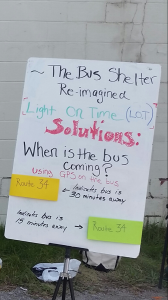 ~ The Bus Shelter
Re-imagined
[Light On Time (LOT)
Solutions:
When is the bus
coming?
using GPS on the bus
Route 34
← Indicates bus is
30 minutes away
Indicates bus is
15 minutes away →
Route 34